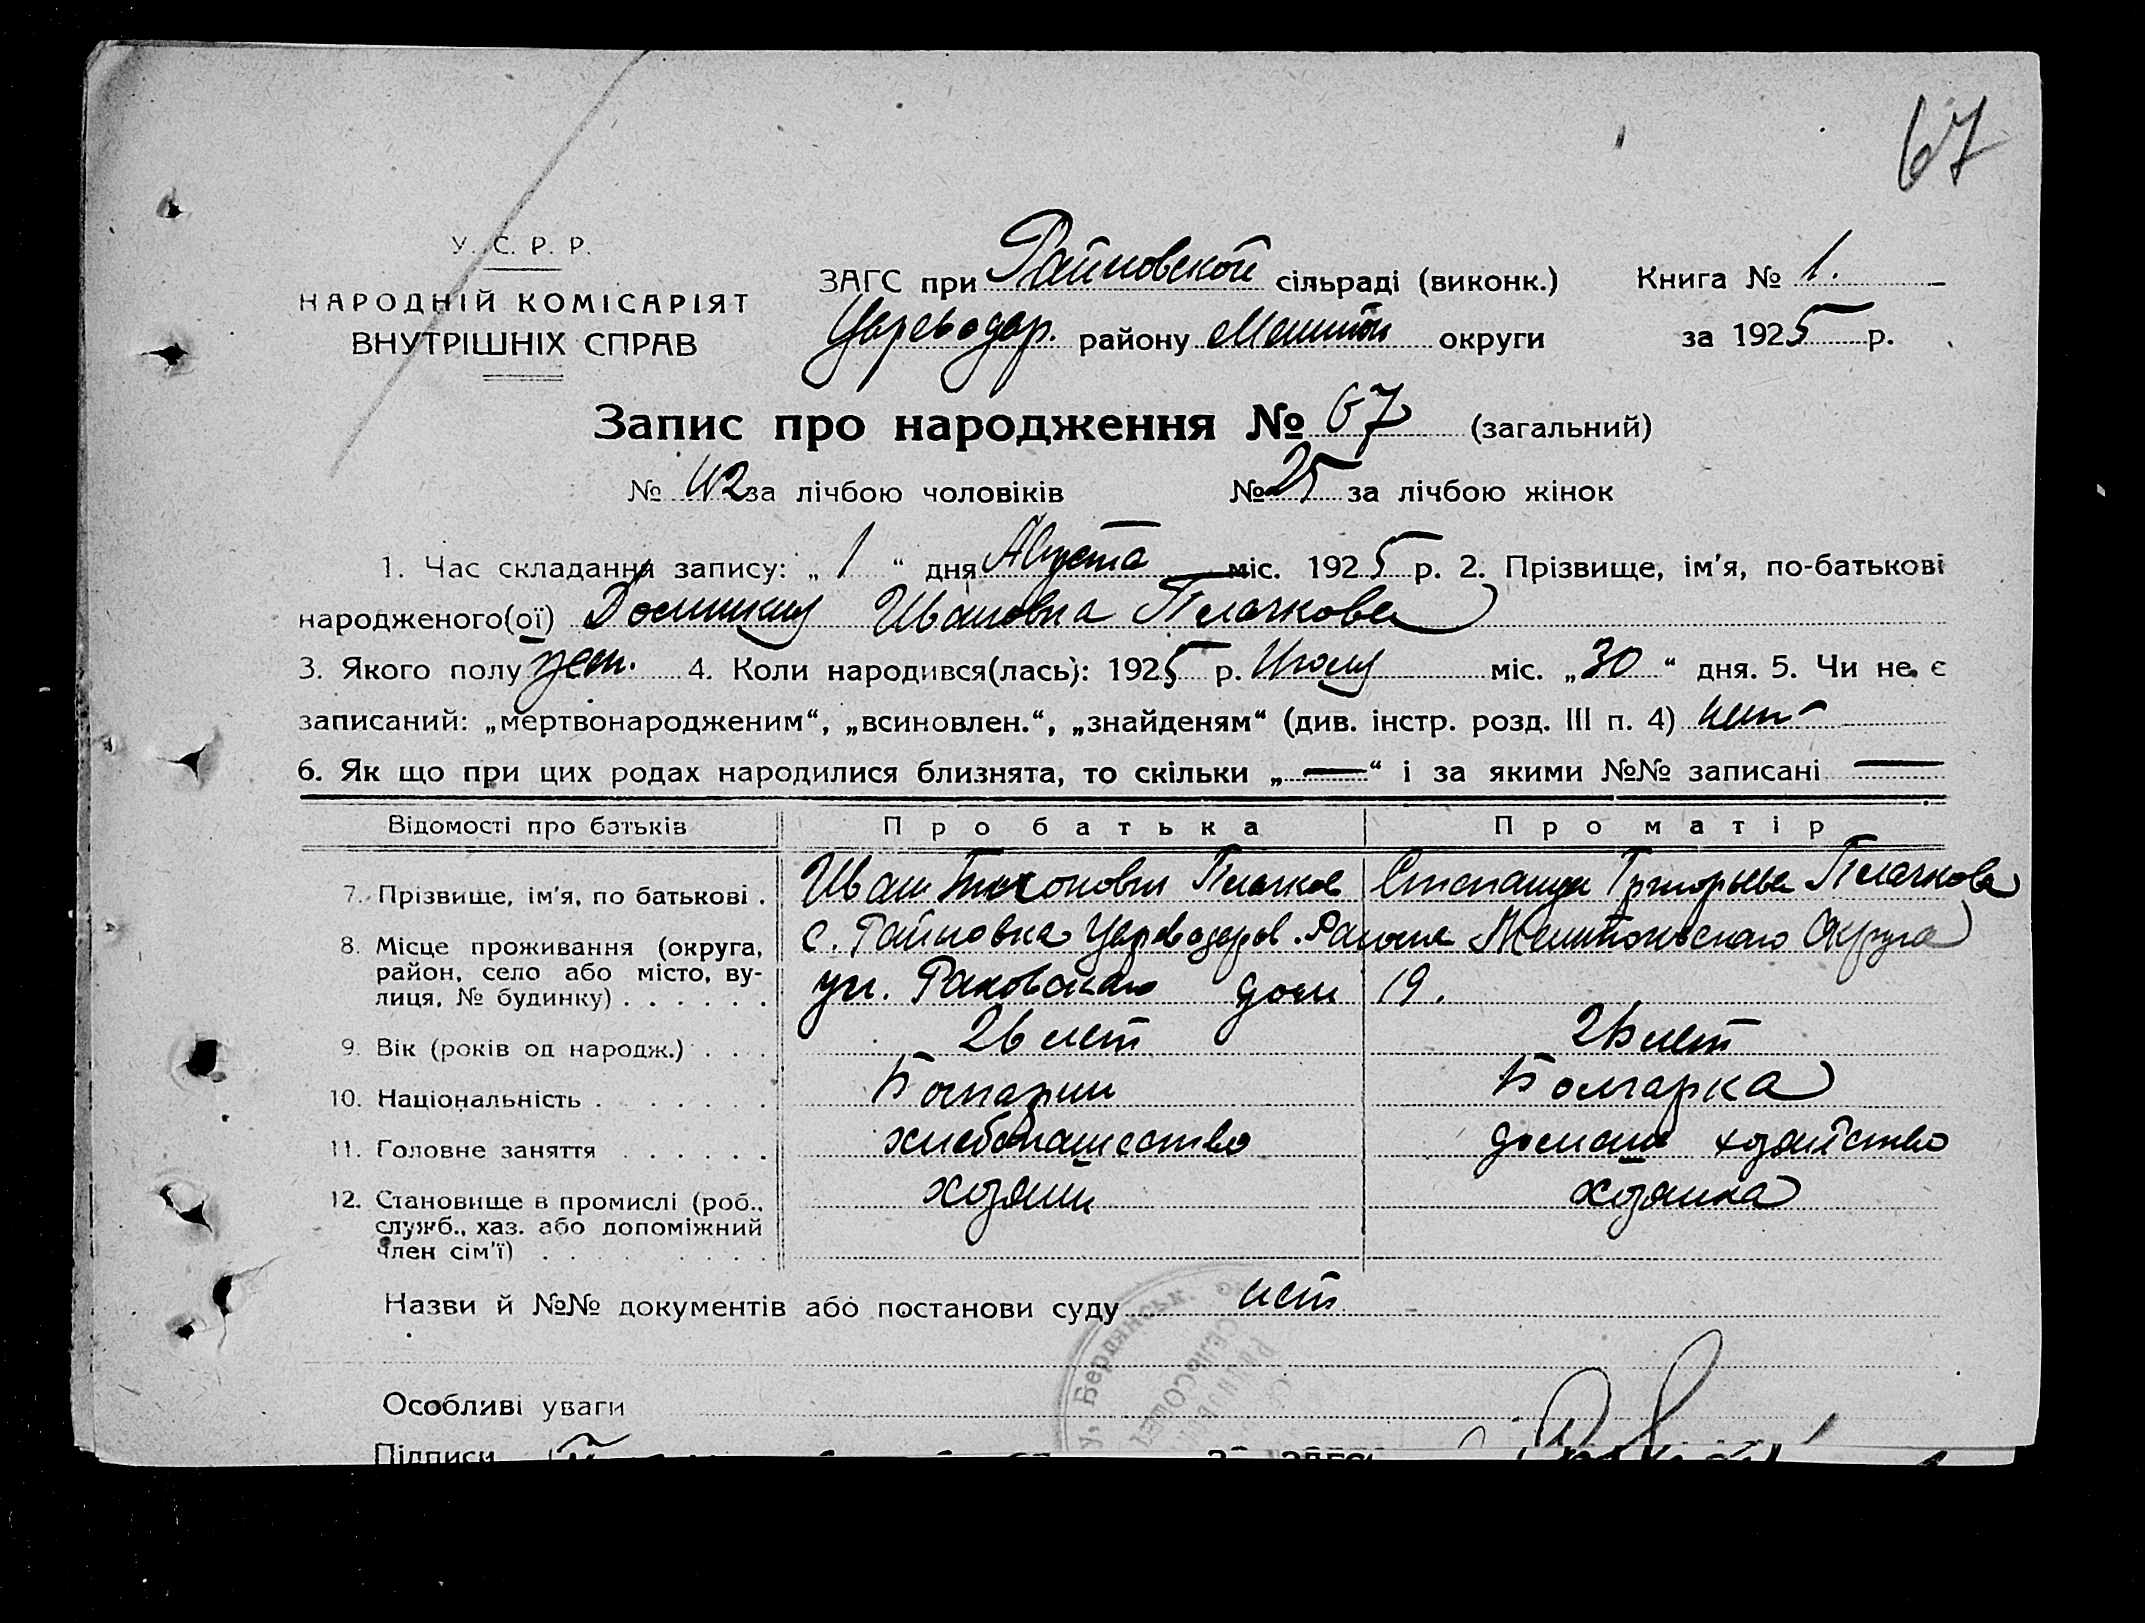 67
У. С. Р. Р.
НАРОДНІЙ КОМІСАРІЯТ
ВНУТРІШНІХ СПРАВ
ЗАГС при Райновской сільраді (виконк.) Книга № 1.
Цареводар. району Мелитоп округи за 1925 р.
Запис про народження № 67 (загальний)
№ 42 за лічбою чоловіків № 25 за лічбою жінок
1. Час складання запису: „ 1 “ дня Августа міс. 1925 р. 2. Прізвище, ім’я, по-батькові
народженого(ої) Ивановна Плачкова
3. Якого полу жен. 4. Коли народився(лась): 1925 р. Июля міс. „30“ дня. 5. Чи не є
записаний: „мертвонародженим“, „всиновлен.“, „знайденям“ (див. інстр. розд. III п. 4) нет
6. Як що при цих родах народилися близнята, то скільки „—“ і за якими №№ записані —
Відомості про батьків Про батька Про матір
7. Прізвище, ім’я, по батькові . Иван Плачков Степанида Григорьева Плачкова
8. Місце проживання (округа, с. Райновка Цареводаров. Района Мелитопольского Округа
район, село або місто, ву-
лиця, № будинку) . . . . . . ул. Раковскаго дом 19.
9. Вік (років од народж.) . . . 26 лет 26 лет
10. Національність . . . . . . Болгарин Болгарка
11. Головне заняття . . . . . . хлебопашество домаш хозяйство
12. Становище в промислі (роб., хозяин хозяика
служб., хаз. або допоміжний
член сім’ї) . . . . . . . .
Назви й №№ документів або постанови суду нет
Бердянськ.
СЕЛЬСОВЕТ
Особливі уваги
Підписи